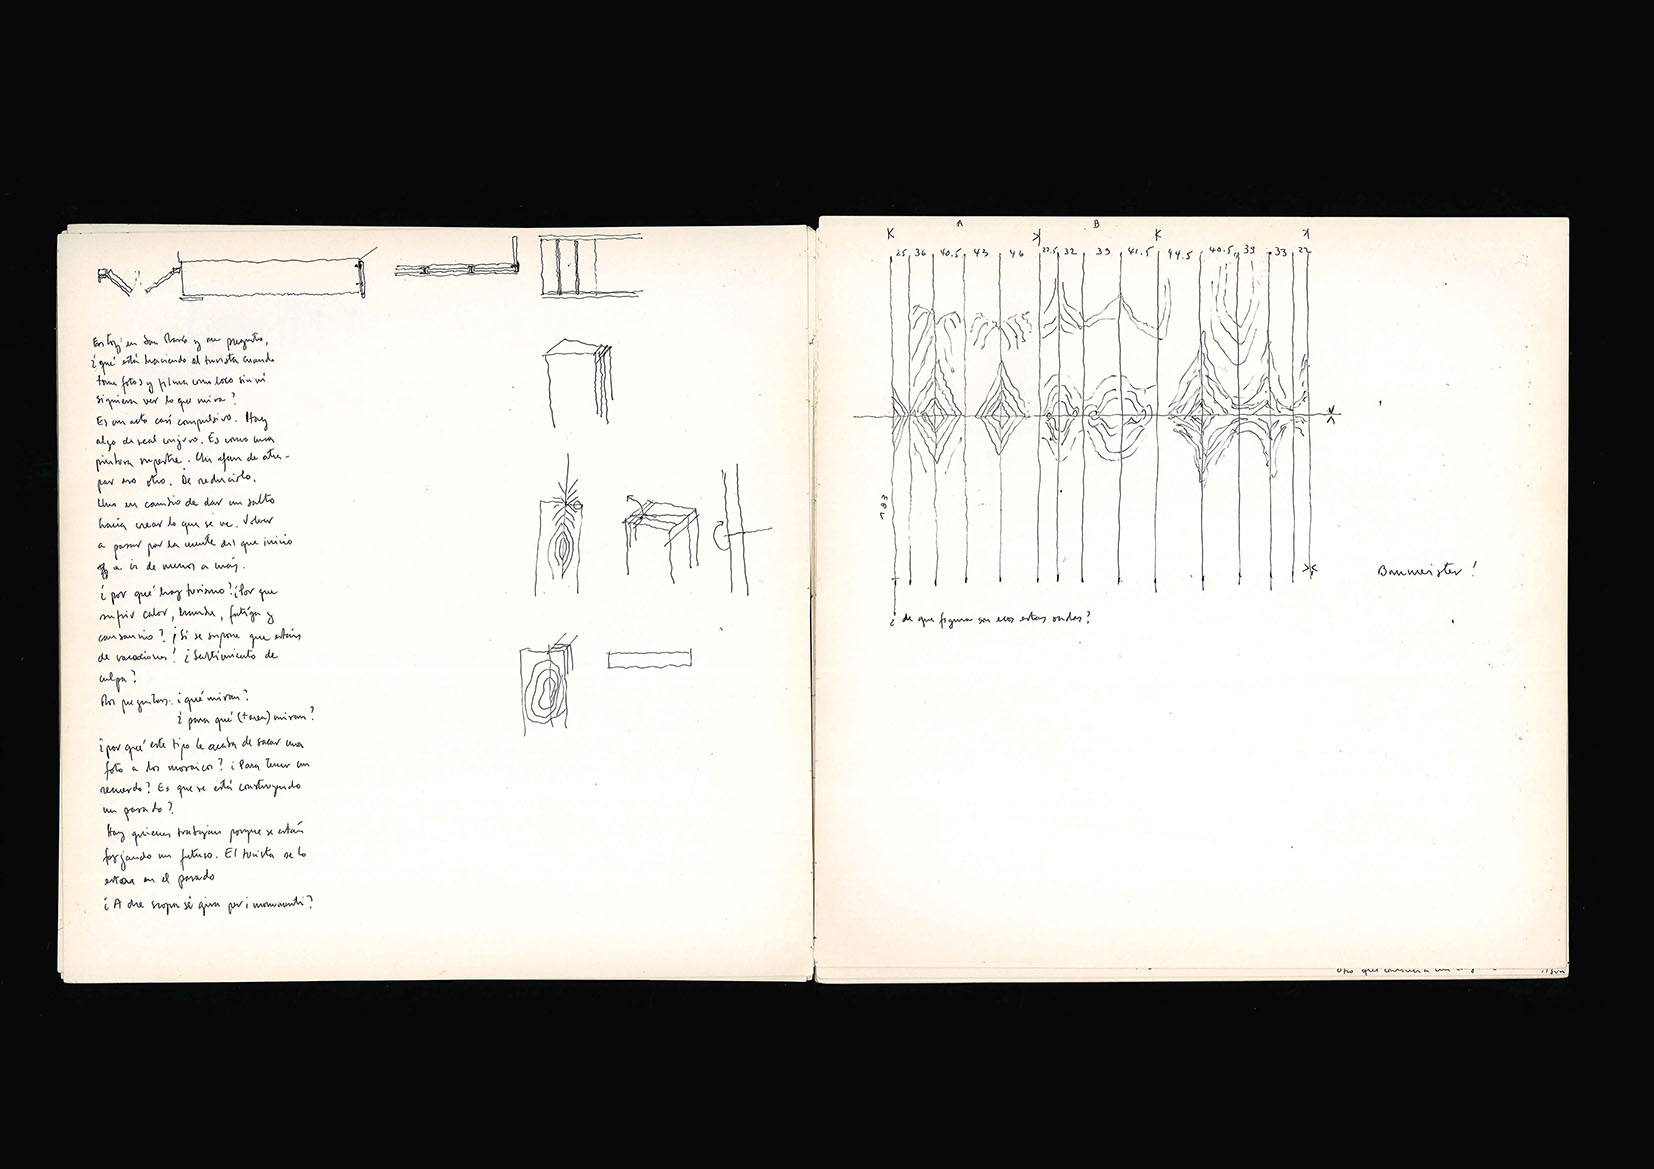 Estoy en San Marco y me pregunto,
¿qué está haciendo el turista cuando
toma fotos y filma como loco sin ni
siquiera ver lo que mira?
Es un acto casi compulsivo. Hay
algo de real conjuro. Es como una
pintura rupestre. Un afán de atra-
par eso otro. De reducirlo.
Uno en cambio de dar un salto
hacia crear lo que se ve. Volver
a pasar por la mente del que inició
a ir de menos a más.
¿por qué hay turismo? ¿Por que
sufrir calor, fatiga y
cansancio? ¡Si se supone que están
de vacaciones! ¿Sentimiento de
culpa?
Dos preguntas. ¿qué miran?
¿para qué (+area) miran?
¿por qué este tipo le acaba de sacar una
foto a los mosaicos? ¿Para tener un
recuerdo? Es que se está construyendo
un pasado?
Hay quienes trabajan porque se están
forjando un futuro. El turista se lo
en el pasado
¿A che scopo si gira per i monumenti?
K A B K
25 36 40.5 43 46 27.5 32 39 41.5 44.5 40.5 39 33 22
183
¿de que figura son ecos estas ondas?
Baumeister!